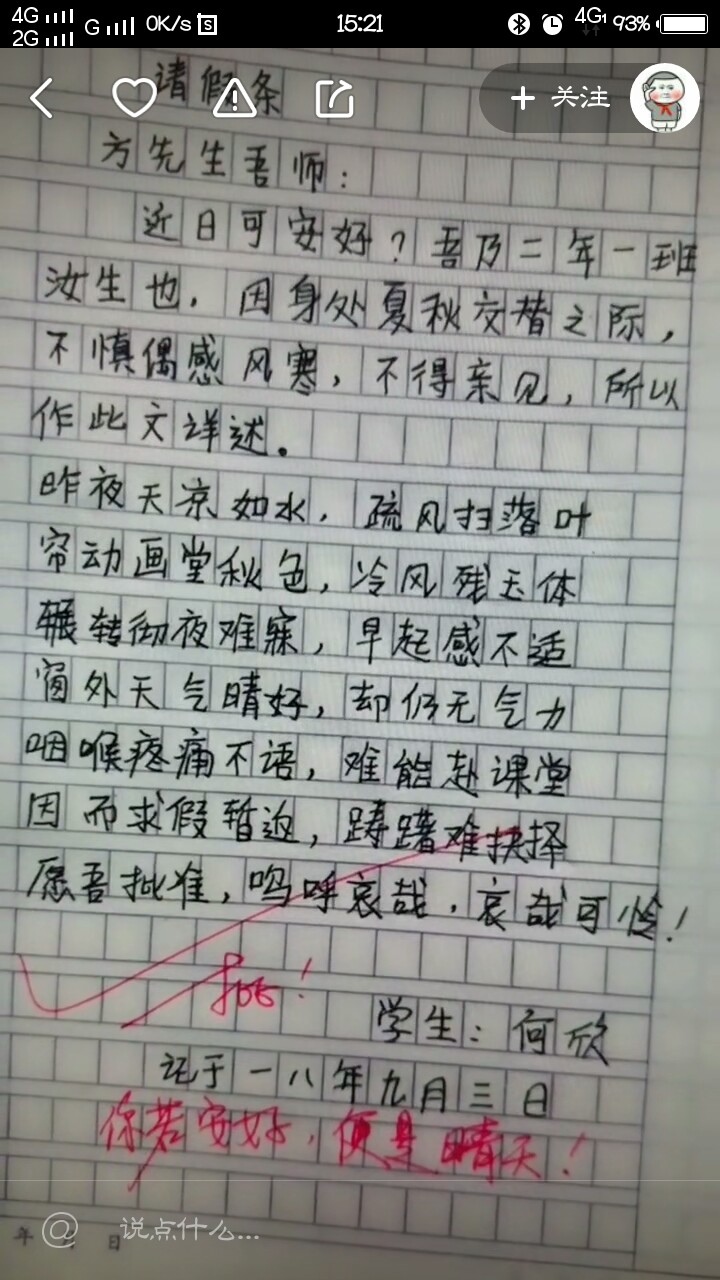 4G 2G G 0K/s S 15:21 4G 93%
请假条
+ 关注
方先生吾师：
近日可安好？吾乃二年一班
汝生也，因身处夏秋交替之际，
不慎偶感风寒，不得亲见，所以
作此文详述。
昨夜天凉如水，疏风扫落叶
帘动画堂秋色，冷风残玉体
辗转彻夜难寐，早起感不适
窗外天气晴好，却仍无气力
咽喉疼痛不语，难能赴课堂
因而求假暂返，踌躇难抉择
愿吾批准，呜呼哀哉，哀哉可怜！
批！
学生：何欣
记于一八年九月三日
你若安好，便是晴天！
@ 说点什么...
年 月 日